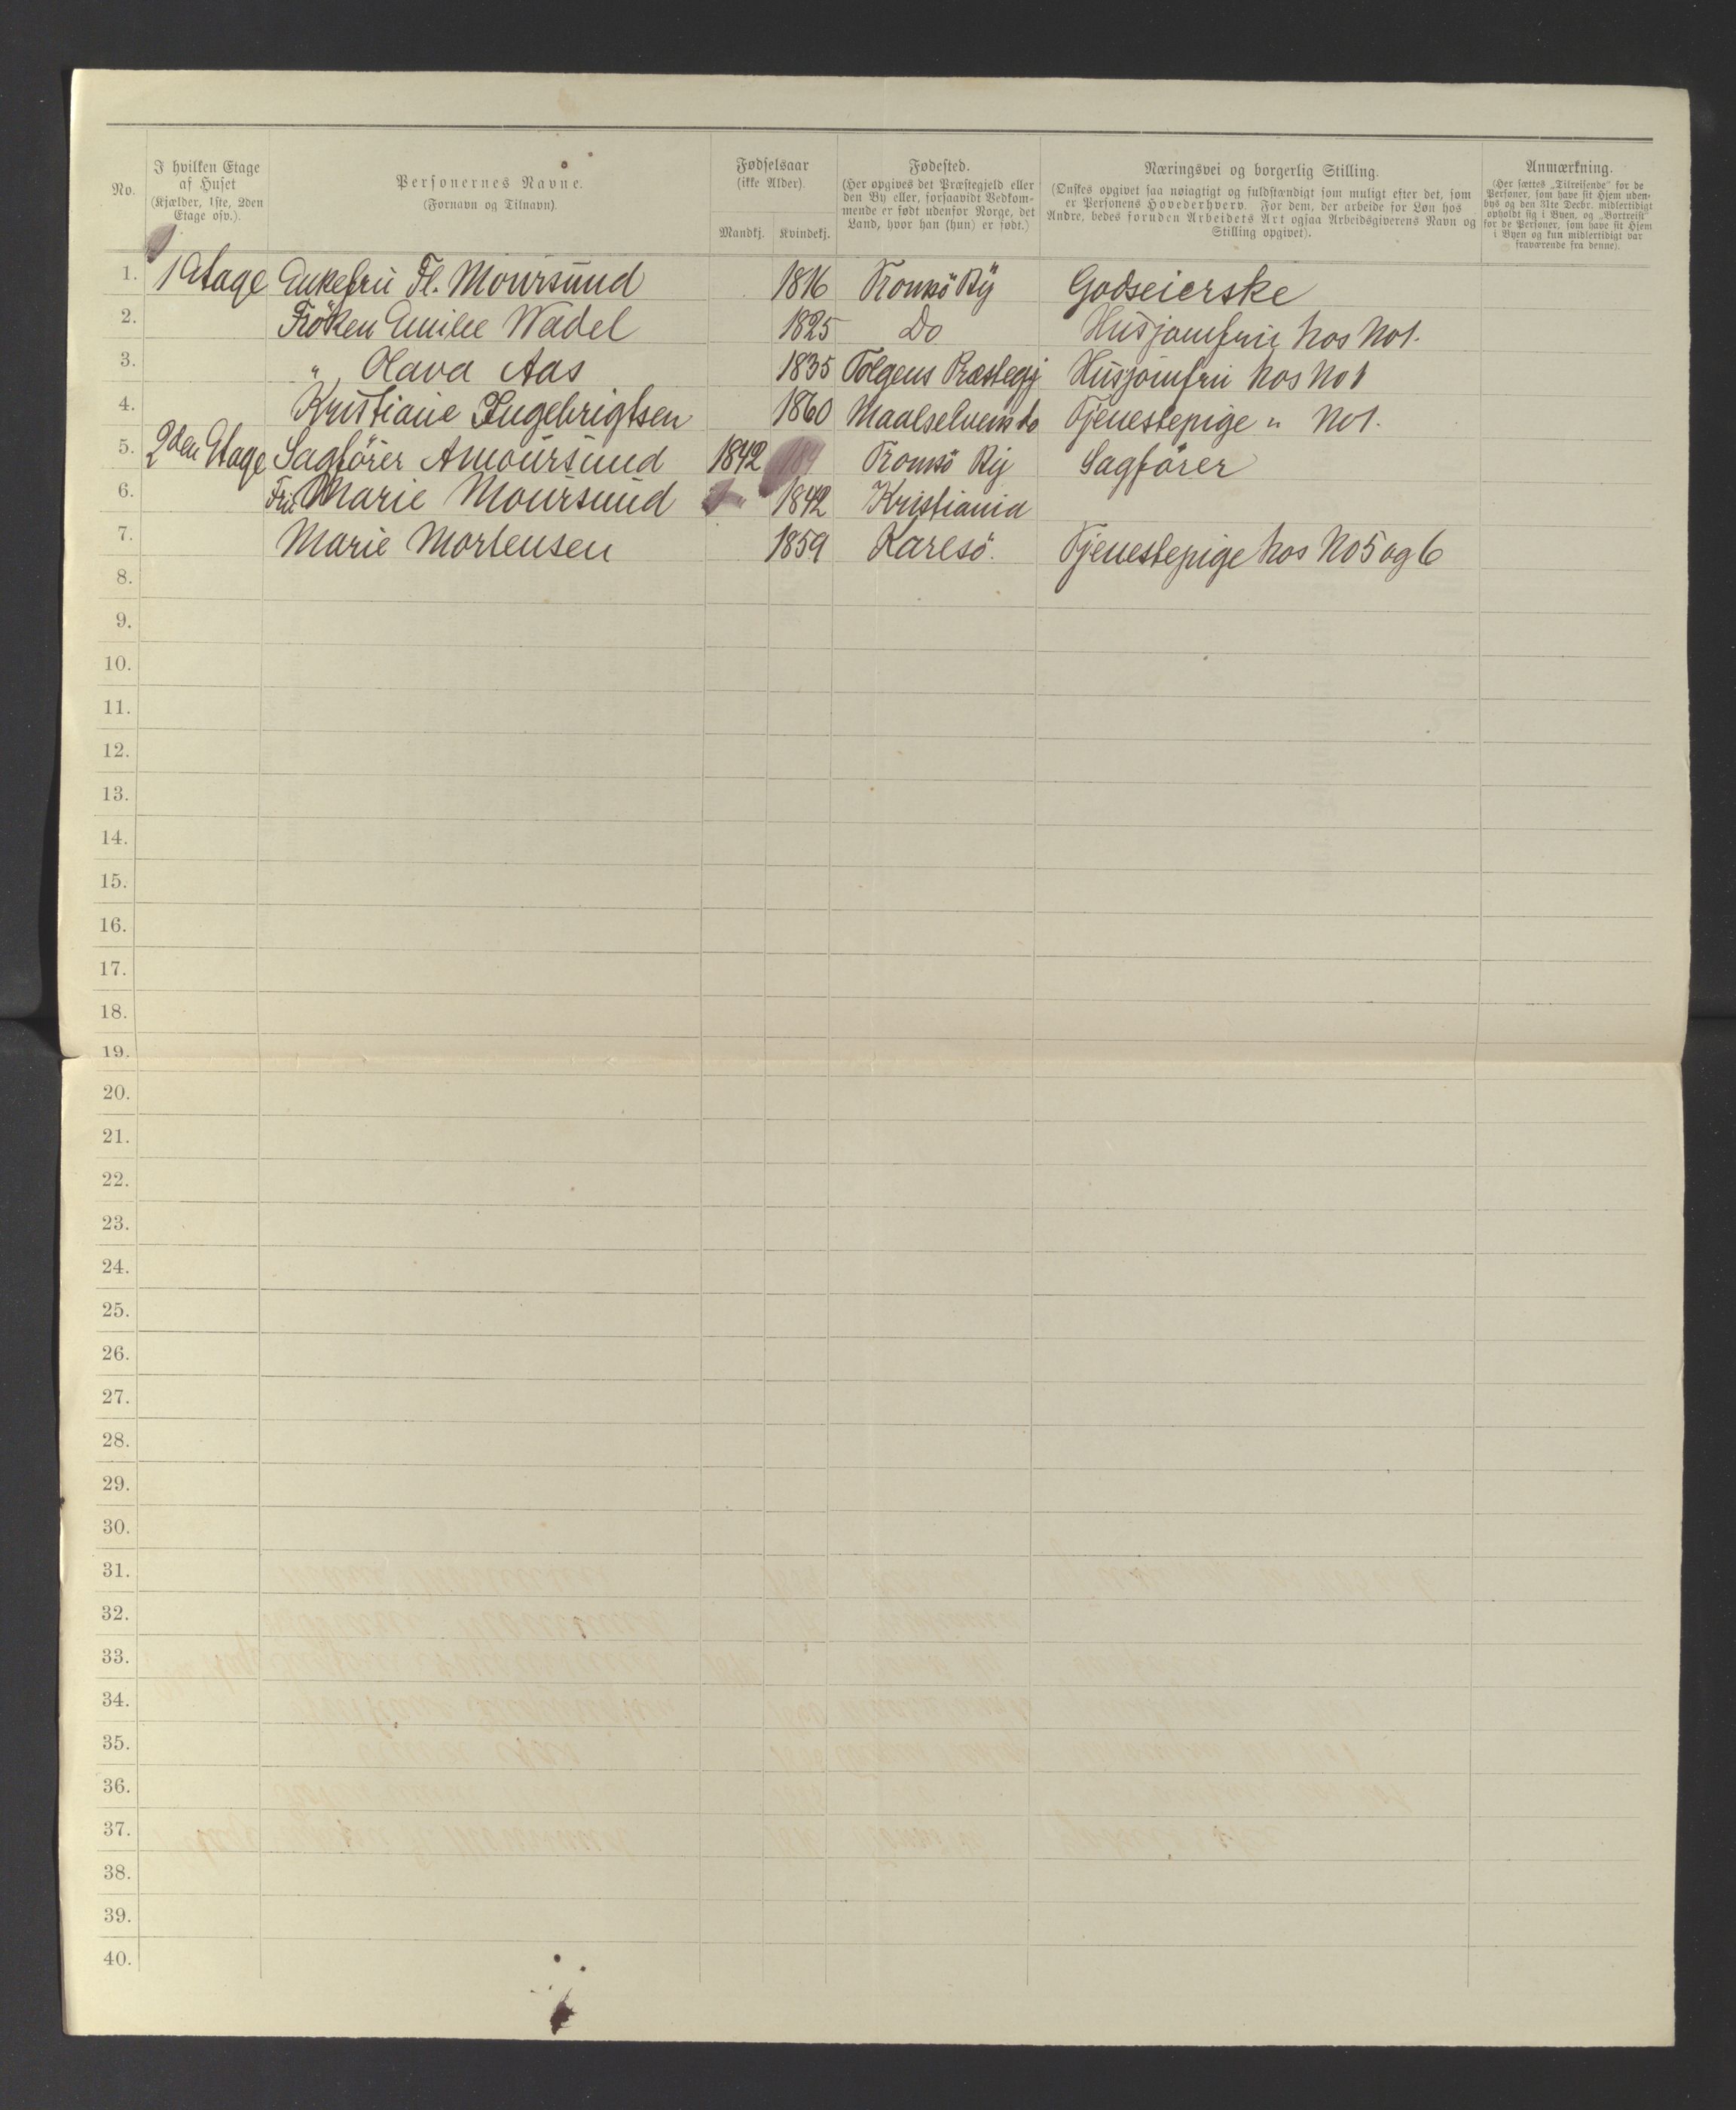 No.
I hvilken Etage af Huset (Kjælder, 1ste, 2den Etage osv.).
Personernes Navne. (Fornavn og Tilnavn).
Fødselsaar (ikke Alder).
Mandkj. Kvindekj.
Fødested. (Her opgives det Præstegjeld eller den By eller, forsaavidt Vedkommende er født udenfor Norge, det Land, hvor han (hun) er født.)
Næringsvei og borgerlig Stilling. (Ønskes opgivet saa nøiagtigt og fuldstændigt som muligt efter det, som er Personens Hovederhverv. For dem, der arbeide for Løn hos Andre, bedes foruden Arbeidets Art ogsaa Arbeidsgiverens Navn og Stilling opgivet).
Anmærkning. (Her sættes „Tilreisende“ for de Personer, som have sit Hjem udenbys og den 31te Decbr. midlertidigt opholdt sig i Byen, og „Bortreist“ for de Personer, som have sit Hjem i Byen og kun midlertidigt var fraværende fra denne).
1. 1 Etage Enkefru Fl. Moursund 1816 Tromsö By Godseierske
2. Fröken Emilie Wadel 1825 Do Husjomfru hos No1.
3. " Olava Aas 1835 Tolgens Præstegj Husjomfru hos No 1
4. Kristiane Ingebrigtsen 1860 Maalselvens do Tjenestepige " No1.
5. 2den Etage Sagförer A Moursund 1842 184 Tromsö By Sagförer
6. Fru Marie Moursund 1842 Kristiania
7. Marie Mortensen 1859 Karlsö. Tjenestepige hos No 5 og 6
8.
9.
10.
11.
12.
13.
14.
15.
16.
17.
18.
19.
20.
21.
22.
23.
24.
25.
26.
27.
28.
29.
30.
31.
32.
33.
34.
35.
36.
37.
38.
39.
40.